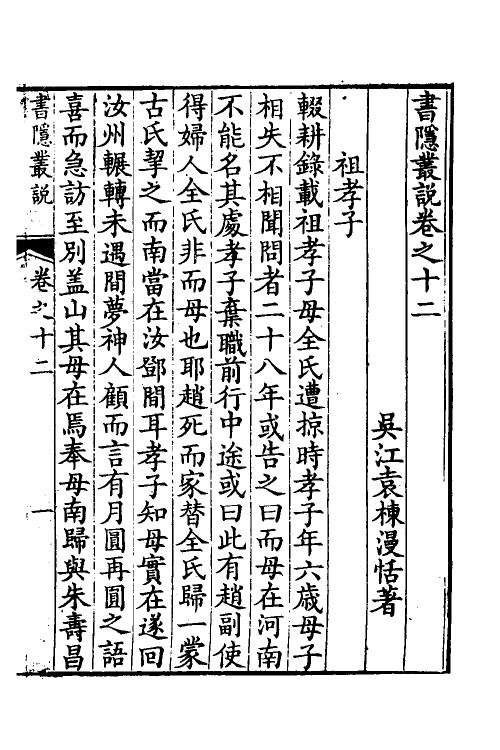 書隱叢説卷之十二
吳江袁棟漫恬著
祖孝子
輟耕錄載祖孝子母全氏遭掠時孝子年六歲母子
相失不相聞問者二十八年或告之曰而母在河南
不能名其處孝子棄職前行中途或曰此有趙副使
得婦人全氏非而母也耶趙死而家替全氏歸一蒙
古氏挈之而南當在汝鄧間耳孝子知母實在遂回
汝州輾轉未遇間夢神人顧而言有月圓再圓之語
喜而急訪至別盖山其母在焉奉母南歸與朱壽昌
書隱叢説
卷之十二
一